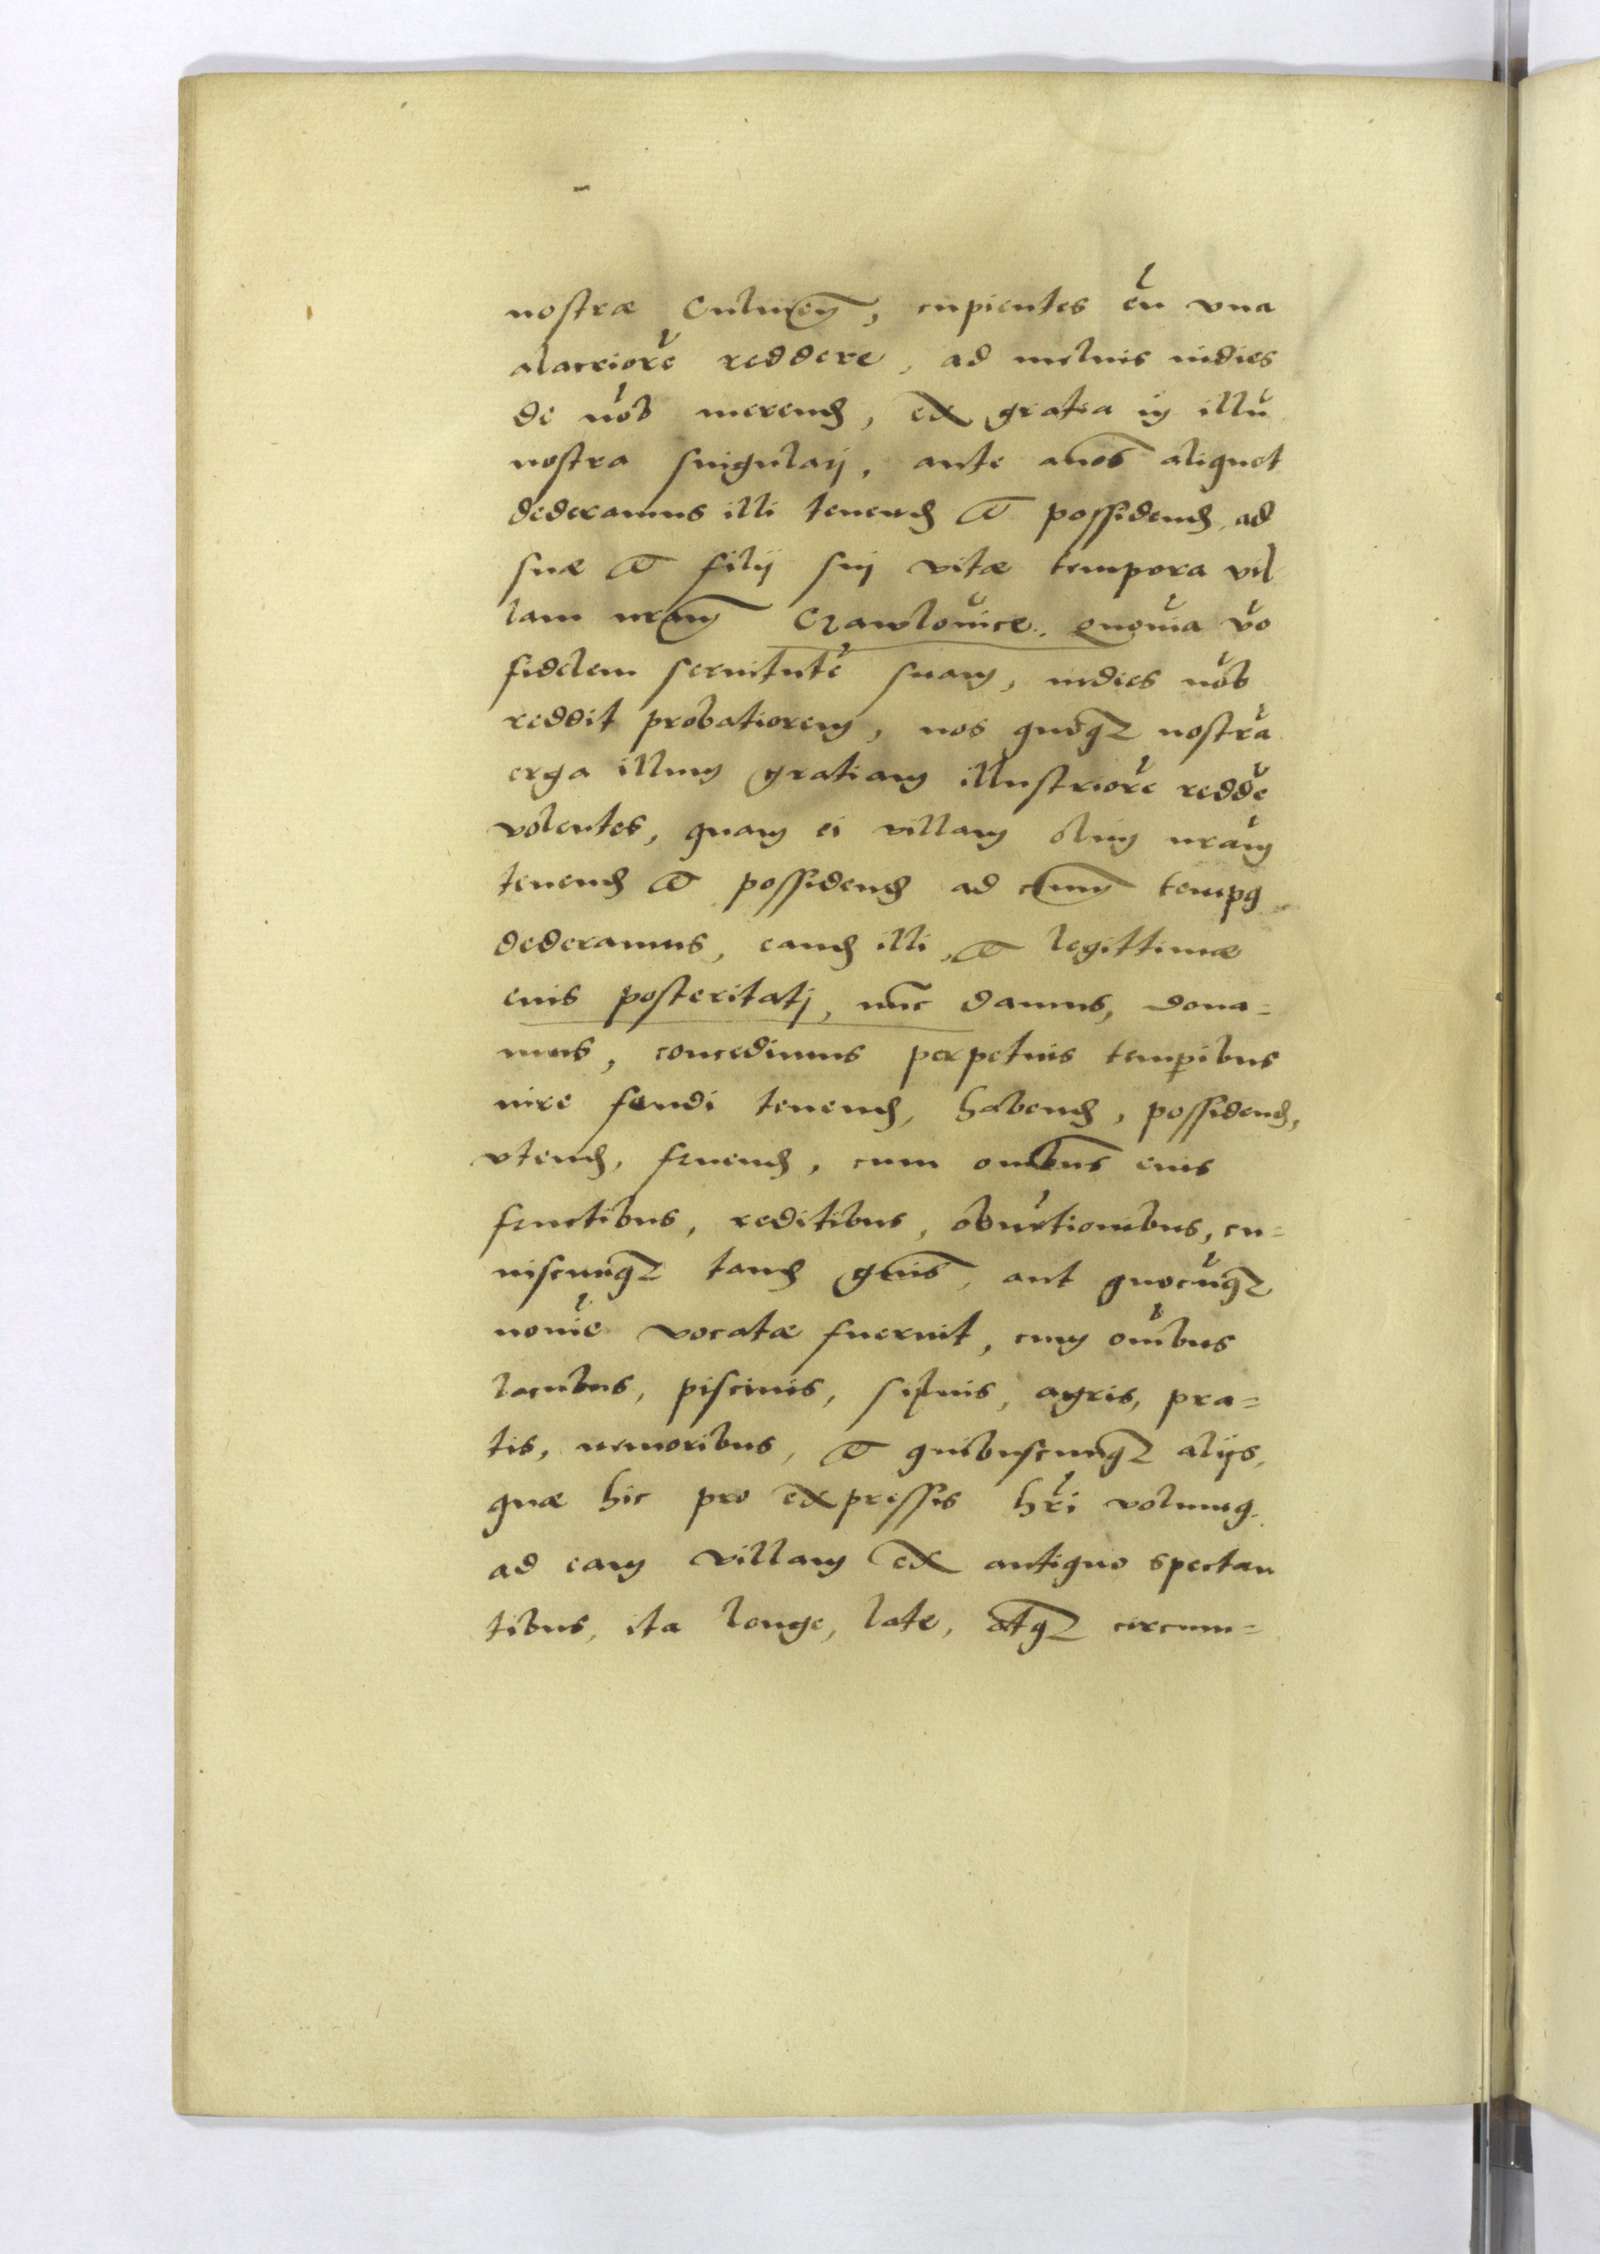 nostræ Culmeñ, cupientes eũ vna
alacriorẽ reddere, ad melius indies
de nob̃ merend, ex gratia in illũ
nostra singulari, ante anos̃ aliquot
dederamus illi tenend et possidend, ad
suæ et filij sui vitæ tempora vil
lam nram̃ Czawlouice. Quoniã vo
fidelem seruitutẽ suam, indies nob̃
reddit probatiorem, nos quoqꝫ nostrã
erga illum gratiam illustriorẽ reddẽ
volentes, quam ei villam olim nram̃
tenend et possidend ad tempꝯ
dederamus, eand illi, et legittimæ
eius posteritati, nũc damus, dona=
mus, concedimus perpetuis tempibus
iure feudi tenend, habend, possidend,
vtend, fruend, cum omĩbus eius
fructibus, reditibus, obuẽtionibus, cu=
iuscunqꝫ tand gñis, aut quocũqꝫ
nomĩe vocatæ fuerint, cum om̃ibus
lacubus, piscinis, siluis, agris, pra=
tis, nemoribus, et quibuscunqꝫ alijs,
quæ hic pro expressis hr̃i volumꝯ.
ad eam villam ex antiquo spectan
tibus, ita longe, late, atqꝫ circum=